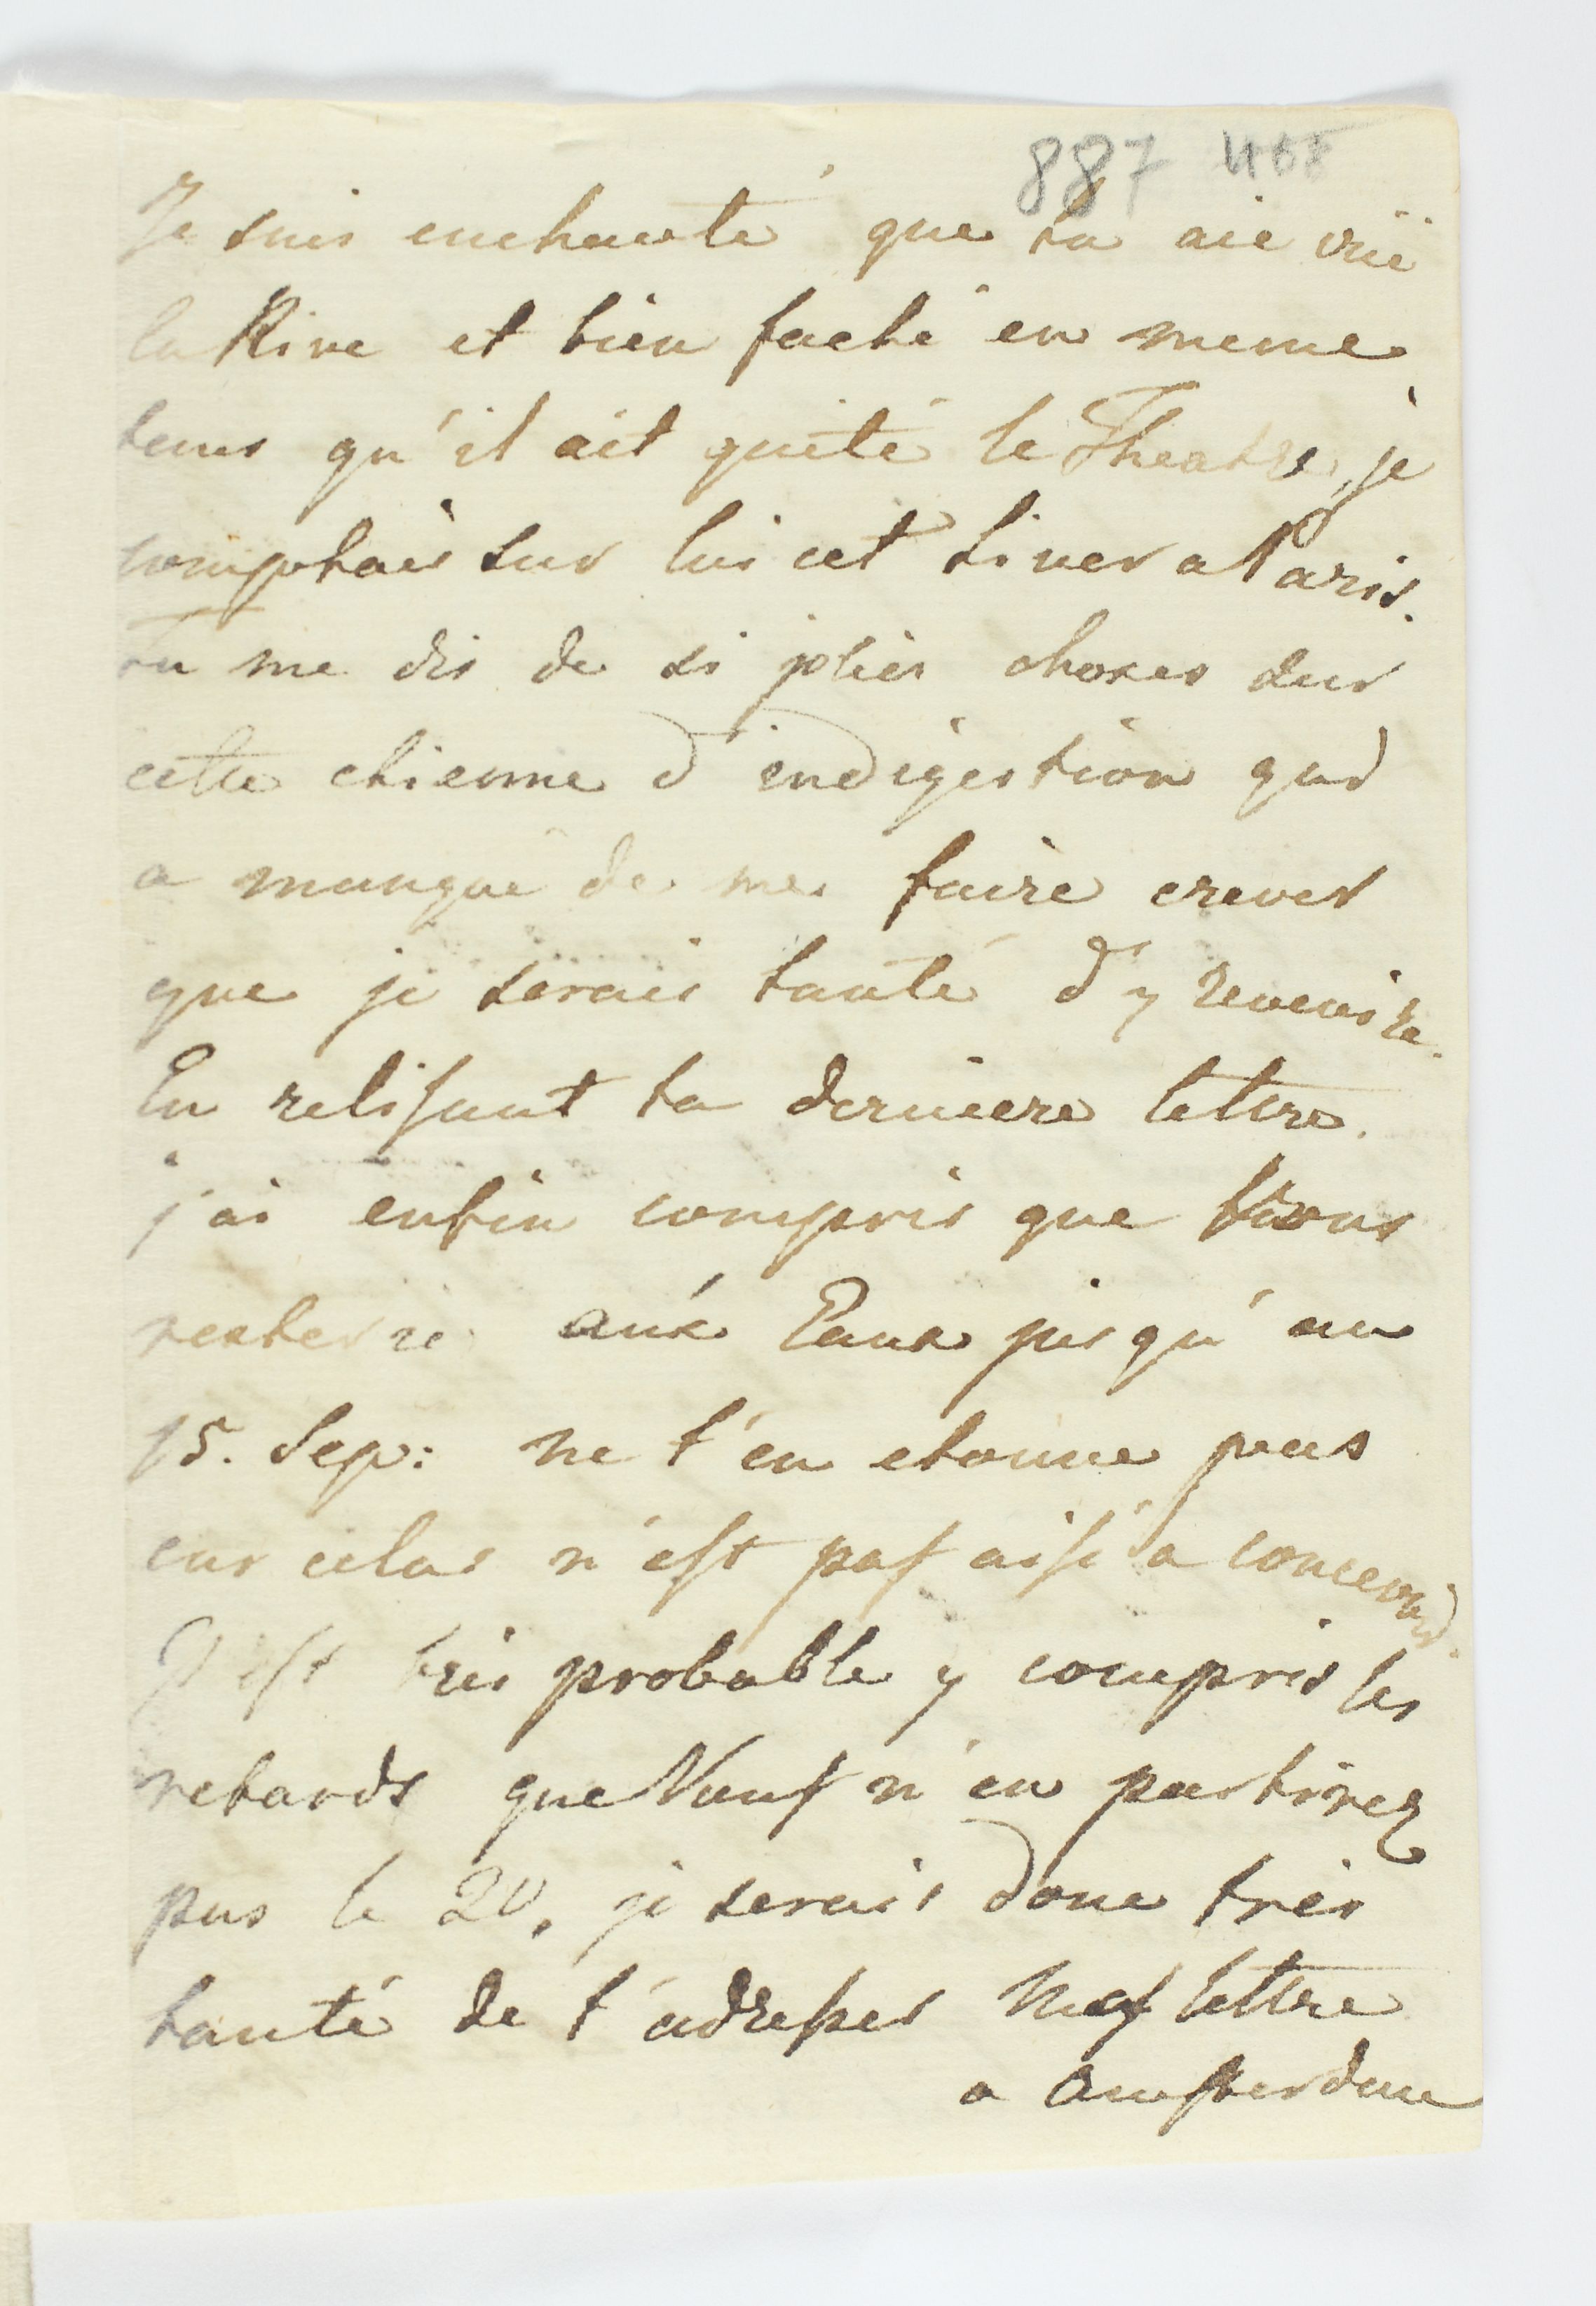 887 468
Je suis enchanté que tu aie vüe
la Rive et bien faché en meme
tems qu'il ait quité le Theatre, je
comptais sur lui cet hiver a Paris.
Tu me dis de si jolies choses sur
cette chienne d'indigestion qui
a manqué de me faire crever
que je serais tanté d'y revenire.
En relisant ta derniere lettre.
j'ai enfin compris que Vous
resterié aux Eaux jusqu'au
15. Sep: ne t'en etonne pas
car celas n'est pas aisé a concevoir.
Il est tres probable y compris les
retards que Vous n'en partirez
pas le 20, je serais donc tres
tanté de t'adresser Mes lettre
a Amsterdam